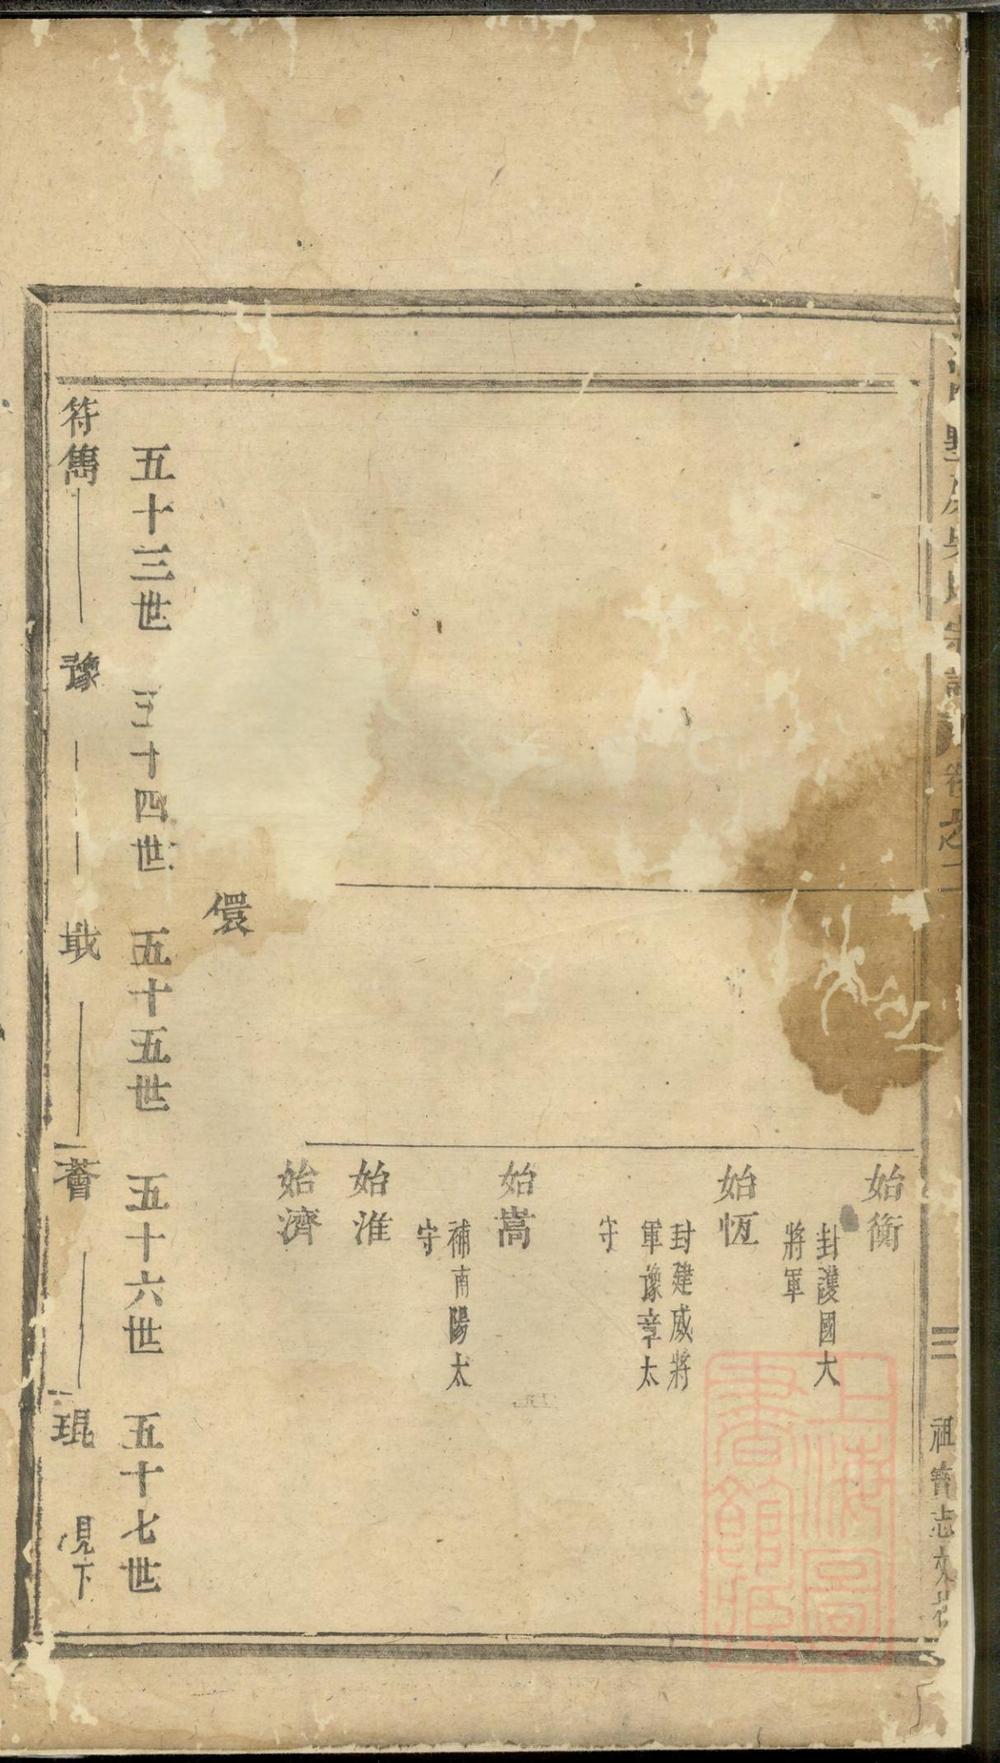 吳氏宗譜 卷之一
三
祖
始衡
封護國大
將軍
始恆
封建威將
軍豫章太
守
始嵩
補南陽太
守
始淮
始濟
儇
五十三世 五十四世 五十五世 五十六世 五十七世
符雋 豫 戢 薈 琨 見下
上海圖
書館藏